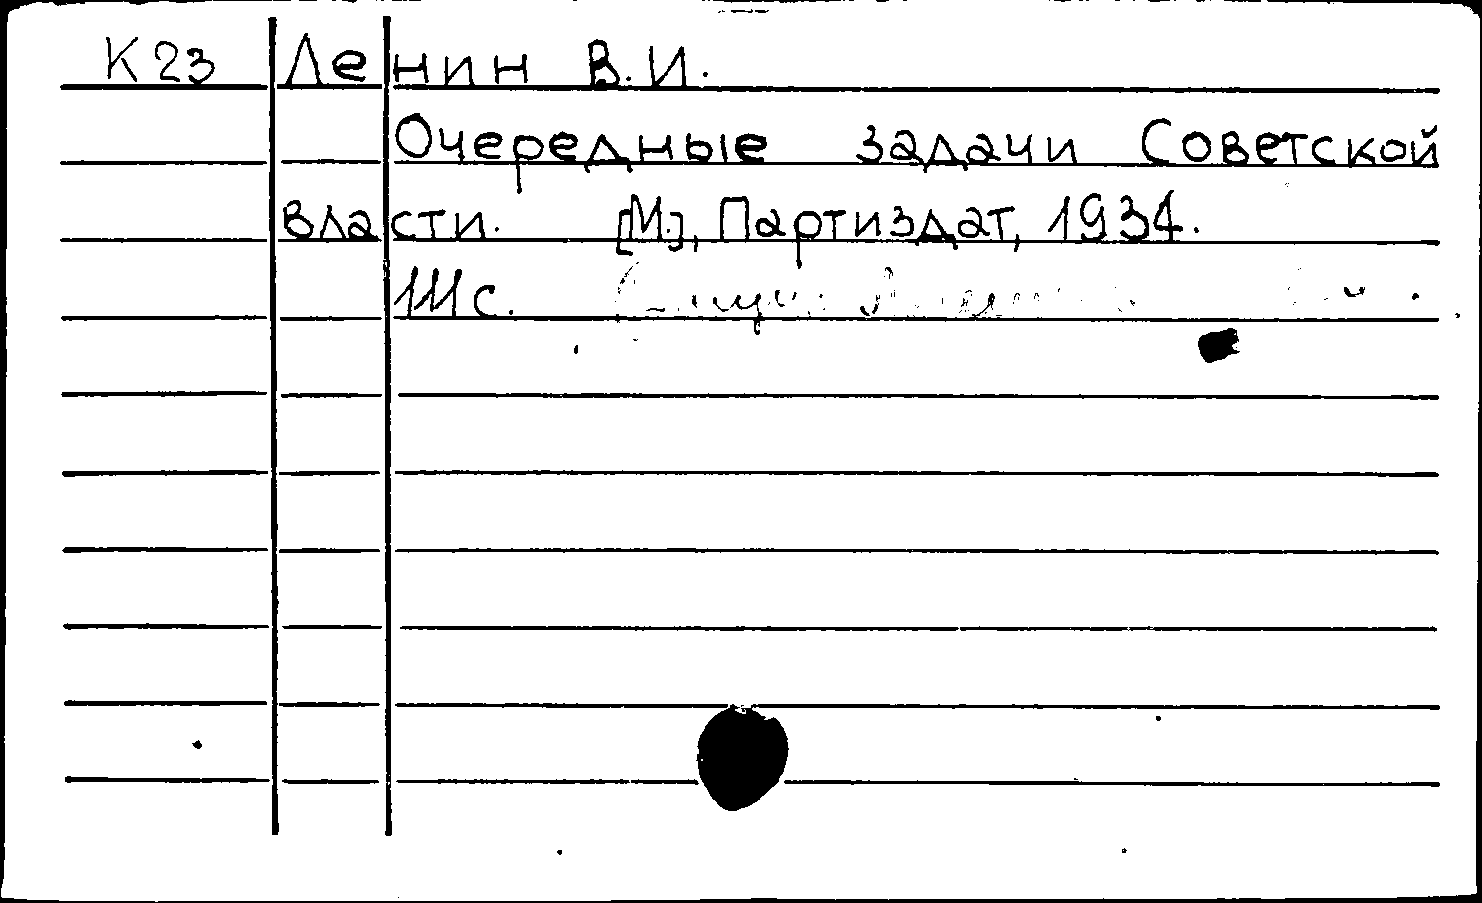 К23 Ленин В.И.
Очередные задачи Советской
власти. [М.], Партиздат, 1934.
111 с.